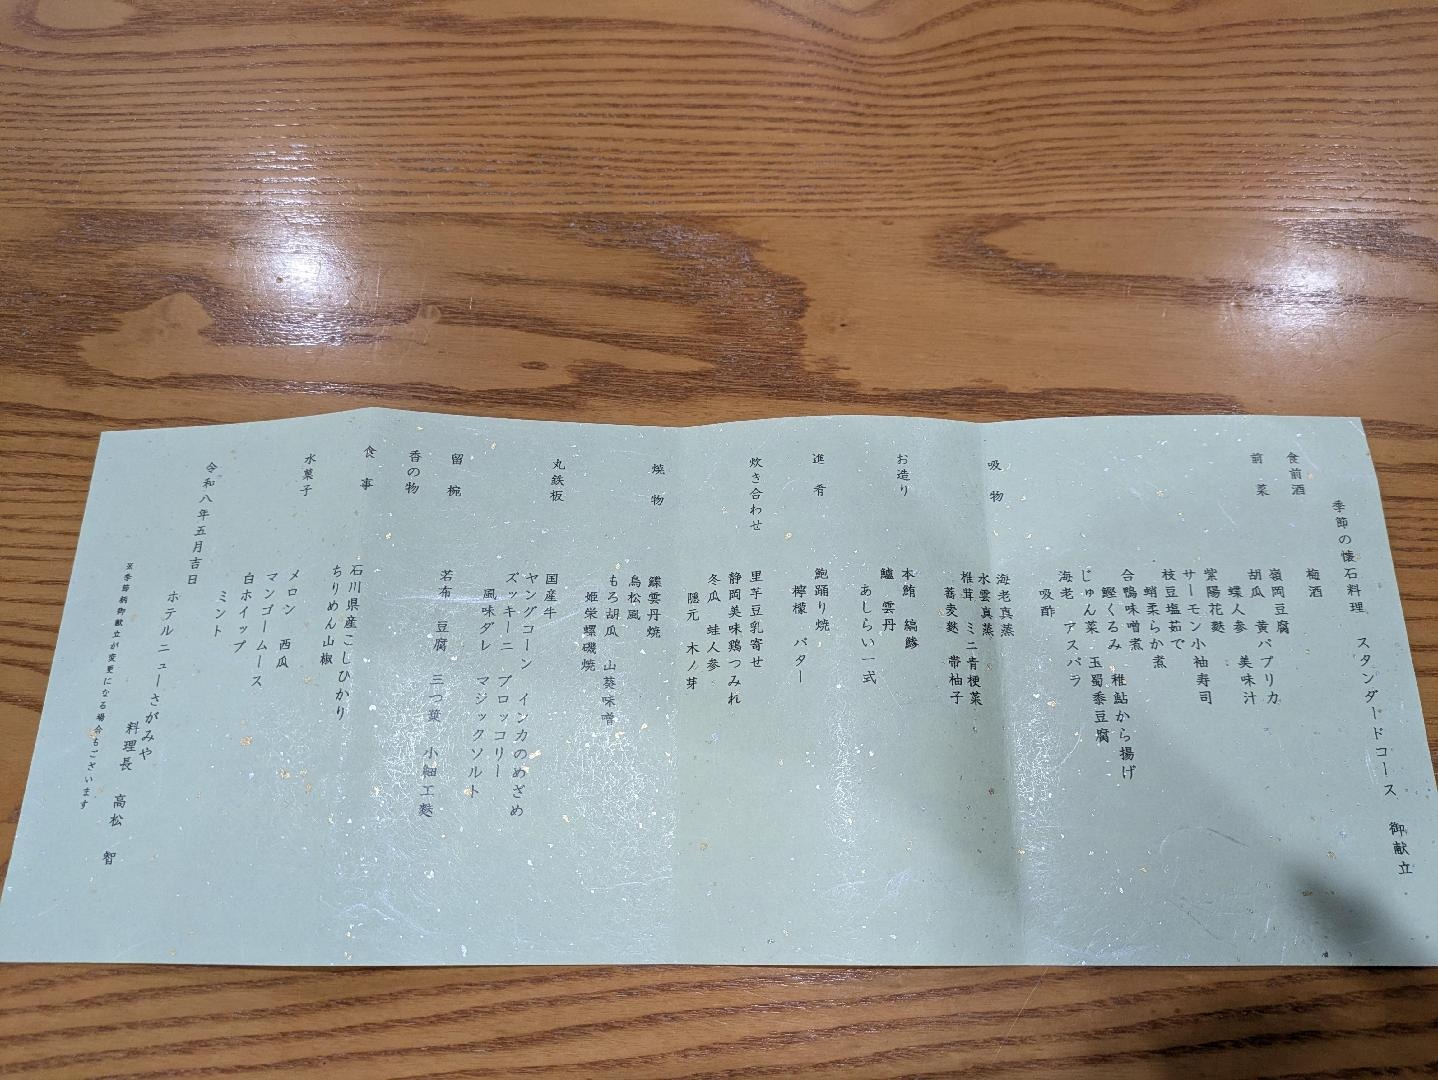 季節の懐石料理 スタンダードコース 御献立
食前酒 梅酒
前菜 嶺岡豆腐
胡瓜 黄パプリカ
蝶人参 美味汁
紫陽花麩
サーモン小袖寿司
枝豆塩茹で
蛸柔らか煮
合鴨味噌煮 稚鮎から揚げ
鰹くるみ 玉蜀黍豆腐
じゅん菜
海老 アスパラ
吸酢
吸物 海老真蒸
水雲真蒸
椎茸 ミニ青梗菜
蕎麦麩 帯柚子
お造り 本鮪 縞鯵
鱸 雲丹
あしらい一式
進肴 鮑踊り焼
檸檬 バター
炊き合わせ 里芋豆乳寄せ
静岡美味鶏つみれ
冬瓜 蛙人参
隠元 木ノ芽
焼物 鰈雲丹焼
烏松風
もろ胡瓜 山葵味噌
姫栄螺磯焼
丸鉄板 国産牛
ヤングコーン インカのめざめ
ズッキーニ ブロッコリー
風味ダレ マジックソルト
留椀 若布 豆腐 三つ葉 小細工麩
香の物
食事 石川県産こしひかり
ちりめん山椒
水菓子 メロン 西瓜
マンゴームース
白ホイップ
ミント
令和八年五月吉日
ホテルニューさがみや
料理長 高松 智
※季節柄御献立が変更になる場合もございます